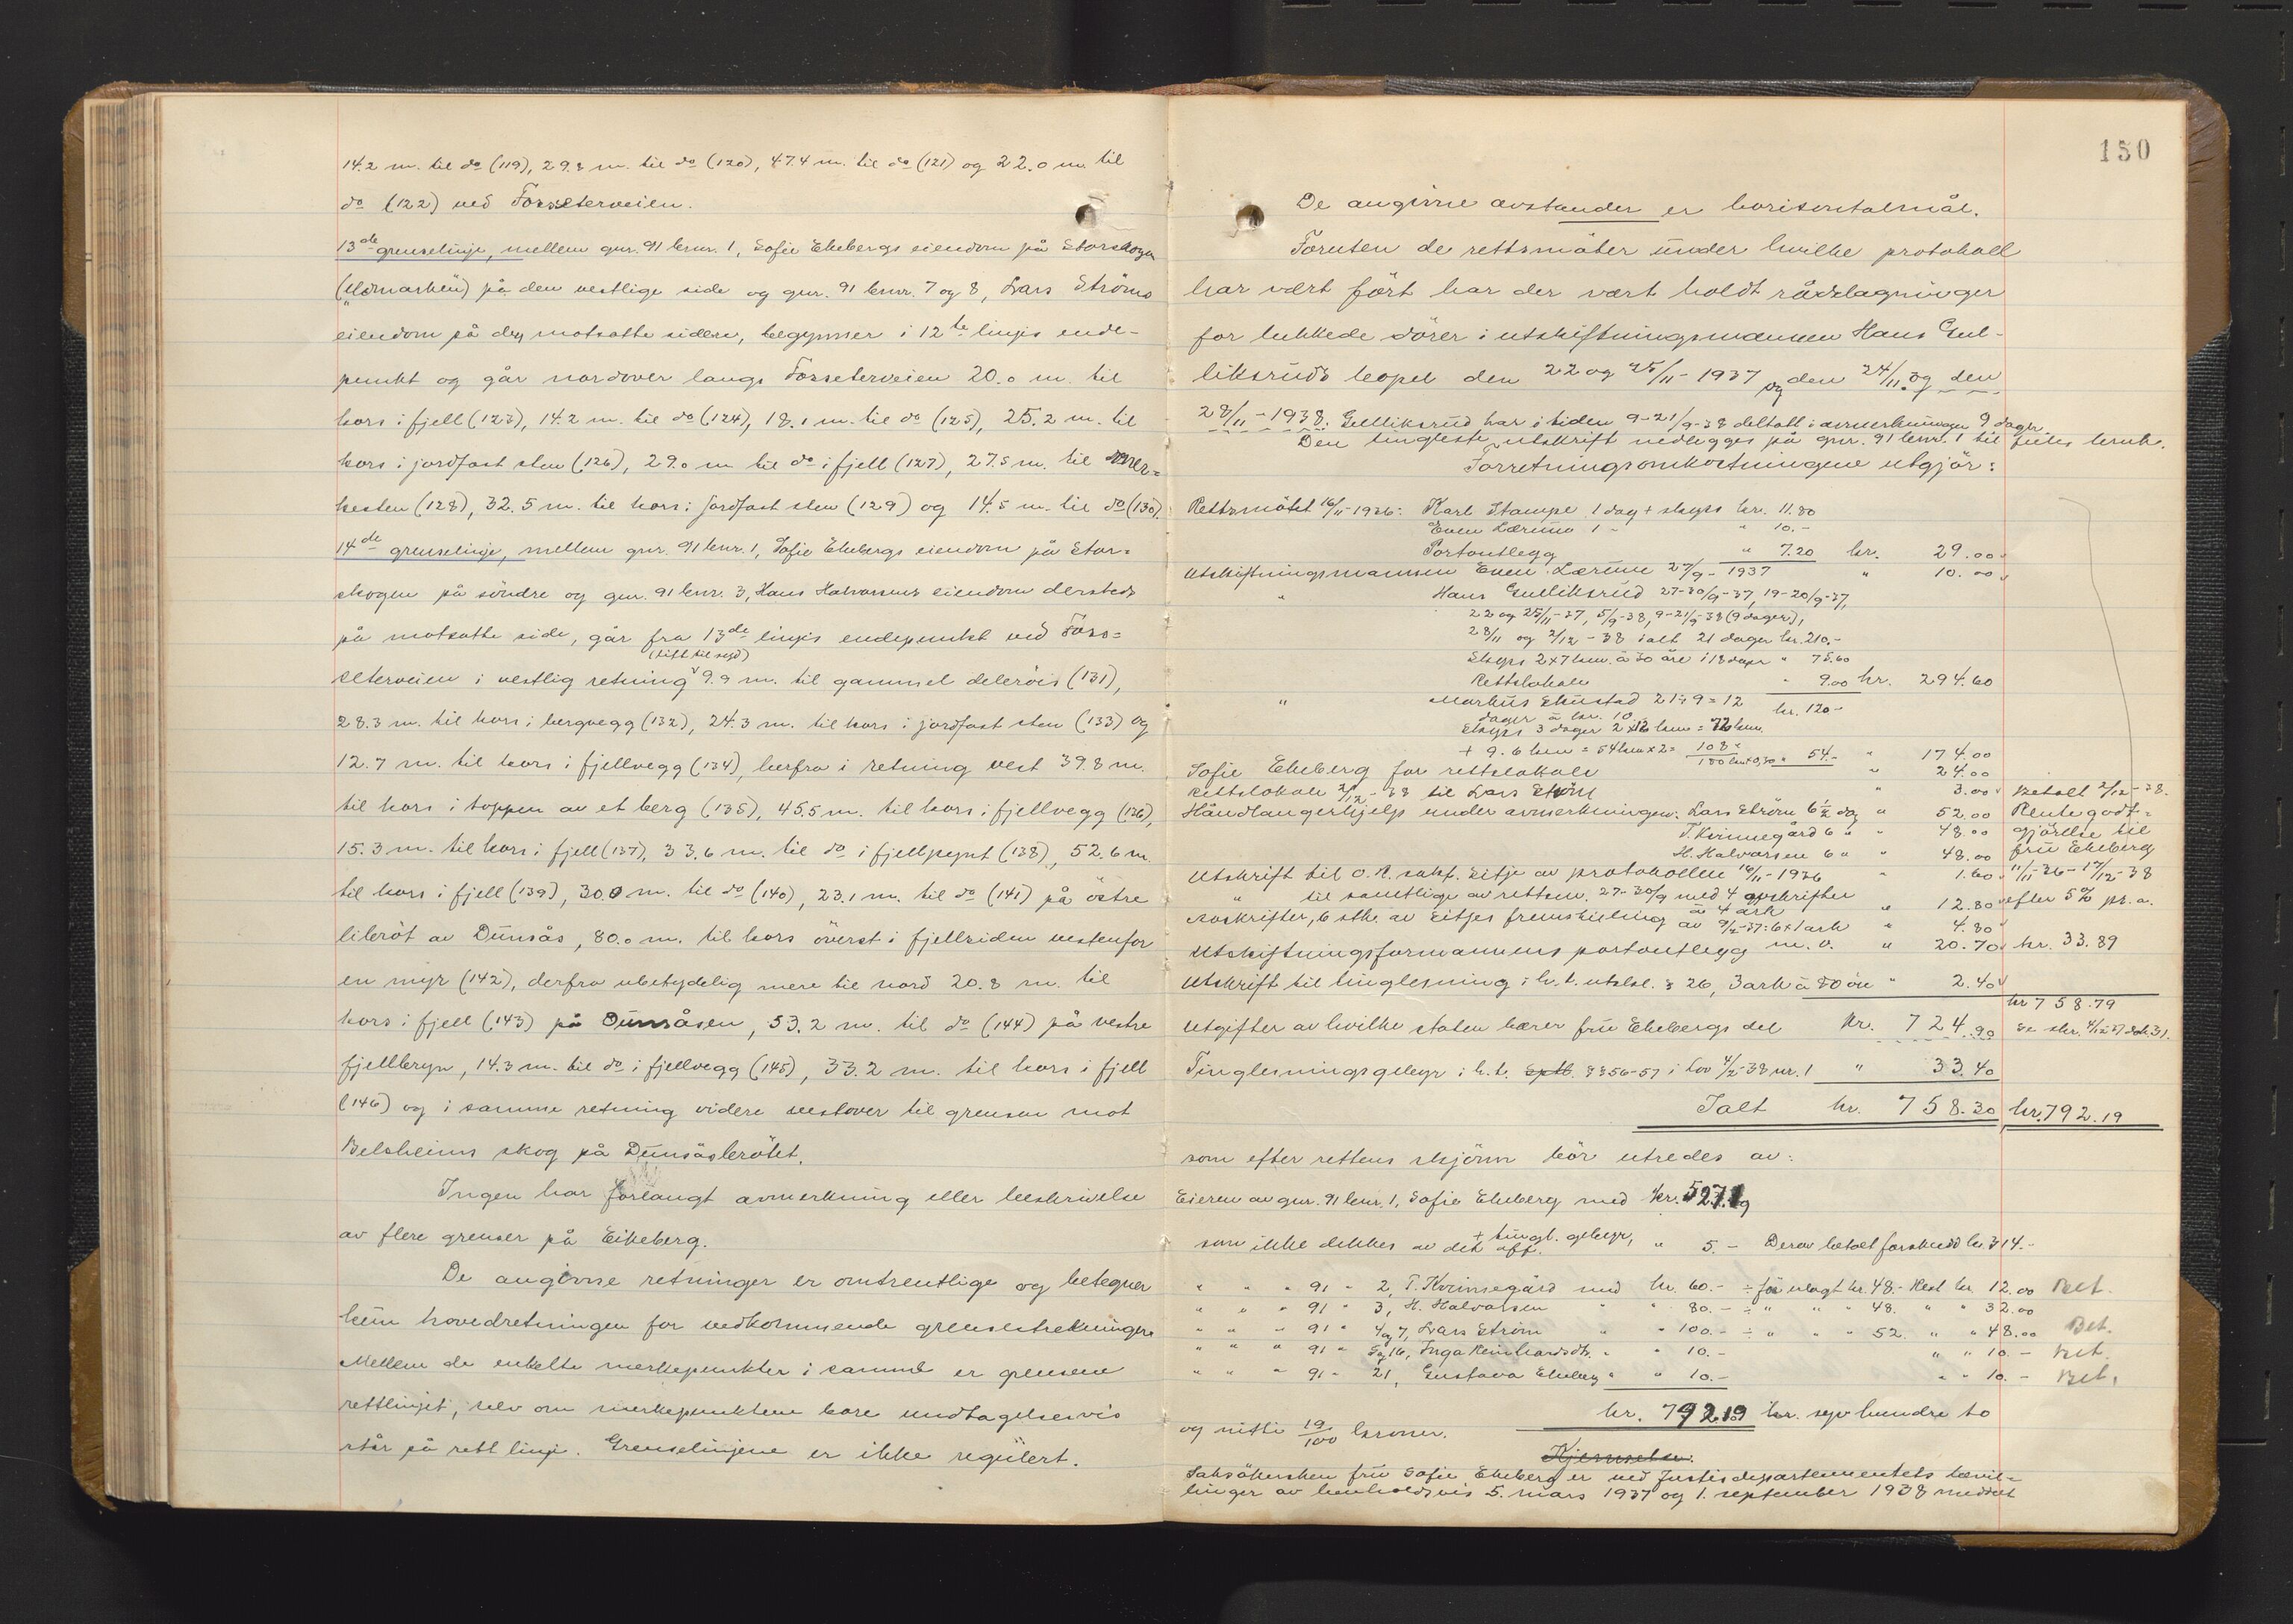 14.2 m. til do (119), 29.8 m. til do (120), 47.4 m. til do (121) og 22.0 m. til
do (122) ved Fossseterveien.
13de grenselinje, mellem gnr. 91 bnr. 1, Sofie Ekebergs eiendom på Storskogen
på den vestlige side og gnr. 91 bnr. 7 og 8, Lars Ströms
eiendom på den motsatte siden, begynner i 12te linjes ende-
punkt og går nordover langs Fosseterveien 20.0 m. til
kors i fjell (123), 14.2 m. til do (124), 18.1 m. til do (125), 25.2 m. til
kors i jordfast sten (126), 29.0 m til do i fjell (127), 27.5 m. til mer-
kesten (128), 32.5 m. til kors i jordfast sten (129) og 14.5 m. til do (130).
14de grenselinje, mellem gnr. 91 bnr. 1, Sofie Ekebergs eiendom på Stor-
skogen på söndre og gnr. 91 bnr. 3, Hans Halvorsens eiendom dersteds
på motsatte side, går fra 13de linjes endepunkt ved Foss-
(litt til syd)
seterveien i vestlig retning 9.9 m. til gammel deleröis (131),
28.3 m. til kors i bergvegg (132), 24.3 m. til kors i jordfast sten (133) og
12.7 m. til kors i fjellvegg (134), herfra i retning vest 39.8 m.
til kors i toppen av et berg (135), 45.5 m. til kors i fjellvegg (136),
15.3 m. til kors i fjell (137), 33.6 m. til do i fjellpynt (138), 52.6 m.
til kors i fjell (139), 30.0 m. til do (140), 23.1 m. til do (141) på östre
libröt av Dunsås, 80.0 m. til kors överst i fjellsiden vestenfor
en myr (142), derfra ubetydelig mere til nord 20.8 m. til
kors i fjell (143) på Dunsåsen, 53.2 m. til do (144) på vestre
fjellbryn, 14.3 m. til do i fjellvegg (145), 33.2 m. til kors i fjell
(146) og i samme retning videre vestover til grensen mot
Belsheims skog på Dunsåsbrötet.
Ingen har forlangt avmerkning eller beskrivelse
av flere grenser på Eikeberg.
De angivne retninger er omtrentlige og betegner
kun hovedretningen for vedkommende grensestrekninger.
Mellem de enkelte merkepunkter i samme er grensene
rettlinjet, selv om merkepunktene bare undtagelsesvis
står på rett linje. Grenselinjene er ikke regulert.
150
De angivne avstander er horisontalmål.
Foruten de rettsmöter under hvilke protokoll
har vært fört har der vært holdt rådslagninger
for lukkede dörer i utskiftningsmannen Hans Gul-
liksruds bopel den 22 og 25/11-1937 og den 24/11 og den
28/11-1938. Gulliksrud har i tiden 9-21/9-38 deltatt i avmerkningen 9 dager.
Den tingleste utskrift nedlegges på gnr. 91 bnr. 1 til felles bruk.
Forretningsomkostningene utgjör:
Rettsmötet 16/11-1936: Karl Stampe 1 dag + skyss kr. 11.80
Even Lærum 1 - " 10.-
Portoutlegg " 7.20 kr. 29.00
Utskiftningsmannen Even Lærum 27/9-1937 " 10.00
" Hans Gulliksrud 27-30/9-37, 19-20/9-37,
22 og 25/11-37, 5/9-38, 9-21/9-38 (9 dager),
28/11 og 2/12-38 ialt 21 dager kr. 210.-
Skyss 2x7 km. à 30 öre i 18 dager " 75.60
Rettslokale " 9.00 kr. 294.60
" Markus Skustad 21÷9=12
dager à kr. 10 kr. 120.-
Skyss 3 dager 2x12 km = 72 km
+ 9.6 km = 54 km x 2 = 108 "
180 km x 0,30 " 54.- " 174.00
Sofie Ekeberg for rettslokale " 24.00
Rettslokale 2/12-38 til Lars Ström " 3.00 Betalt 2/12-38.
Håndlangerhjelp under avmerkningen: Lars Ström 6½ dag " 52.00 Rentegodt-
T. Kvinnegård 6 " " 48.00 gjörelse til
H. Halvorsen 6 " " 48.00 fru Ekeberg
Utskrift til O.R. sakf. Eitje av protokollen 16/11-1936 " 1.60 11/11-36-17/12-38
" til samtlige av rettsm. 27-30/9 med 4 avskrifter
à 4 ark " 12.80 efter 5% pr. a.
Avskrifter, 6 stk. av Eitjes fremstilling av 9/2-37: 6x1 ark " 4.80
Utskiftningsformannens portoutlegg m. v. " 20.70 kr. 33.89
Utskrift til tinglesning i h. t. utskl. § 26, 3 ark à 80 öre " 2.40
kr 758.79
Utgifter av hvilke staten bærer fru Ekebergs del kr. 724.90
Tinglesningsgebyr i h. t. §356-57 i lov 4/2-38 nr. 1 " 33.40
Ialt kr. 758.30 kr. 792.19
som efter rettens skjönn bör utredes av:
Eieren av gnr. 91 bnr. 1, Sofie Ekeberg med kr. 527.19
+ tingl. gebyr,
som ikke dekkes av det off. " 5.- Derav betalt forskudd kr. 314.-
" " " 91 " 2, T. Kvinnegård med kr. 60.- ÷ för utlagt kr. 48.- Rest kr. 12.00 Bet.
" " " 91 " 3, H. Halvorsen " " 80.- ÷ " " " 48. " " 32.00
" " " 91 " 4 og 7, Lars Ström " " 100.- ÷ " " " 52. " " 48.00 Bet.
" " " 91 " 5 og 16, Inga Reinhardsdt. " " 10.- " " 10.- Bet.
" " " 91 " 21, Gustava Ekeberg " " 10.- " " 10.- Bet.
kr. 792.19 kr. syv hundre to
og nitti 19/100 kroner.
Kjennelse.
Saksökersken fru Sofie Ekeberg er ved Justisdepartementets bevil-
linger av henholdsvis 5. mars 1937 og 1. september 1938 meddelt